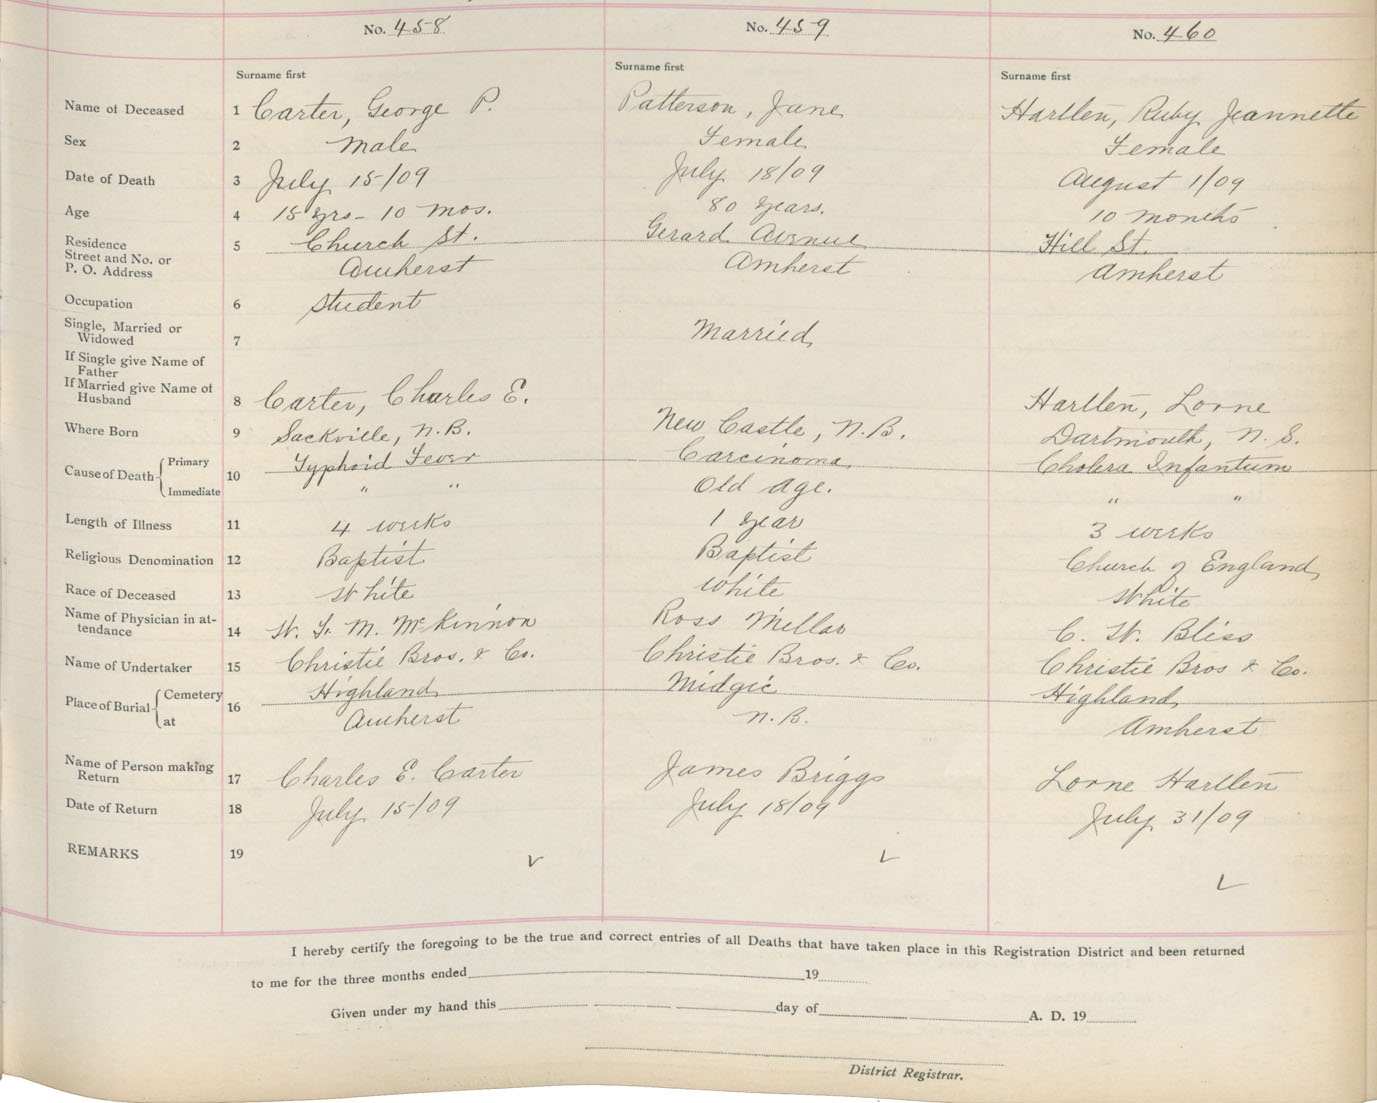 No. 458 No. 459 No. 460
Surname first Surname first Surname first
Name of Deceased 1 Carter, George P. Patterson, Jane Hartlen, Ruby Jeannette
Sex 2 Male Female Female
Date of Death 3 July 15/09 July 18/09 August 1/09
Age 4 15 yrs - 10 mos. 80 years. 10 months
Residence 5 Church St. Gerard Avenue Hill St.
Street and No. or
P. O. Address Amherst Amherst Amherst
Occupation 6 Student
Single, Married or
Widowed 7 Married
If Single give Name of
Father
If Married give Name of
Husband 8 Carter, Charles E. Hartlen, Lorne
Where Born 9 Sackville, N.B. New Castle, N.B. Dartmouth, N.S.
Cause of Death Primary 10 Typhoid Fever Carcinoma Cholera Infantum
Immediate " " Old Age. " "
Length of Illness 11 4 weeks 1 year 3 weeks
Religious Denomination 12 Baptist Baptist Church of England
Race of Deceased 13 White White White
Name of Physician in at-
tendance 14 W. F. M. McKinnon Ross Millar C. W. Bliss
Name of Undertaker 15 Christie Bros. & Co. Christie Bros. & Co. Christie Bros & Co.
Place of Burial Cemetery 16 Highland Midgic Highland
at Amherst N.B. Amherst
Name of Person making
Return 17 Charles E. Carter James Briggs Lorne Hartlen
Date of Return 18 July 15/09 July 18/09 July 31/09
REMARKS 19
I hereby certify the foregoing to be the true and correct entries of all Deaths that have taken place in this Registration District and been returned
to me for the three months ended 19
Given under my hand this day of A. D. 19
District Registrar.